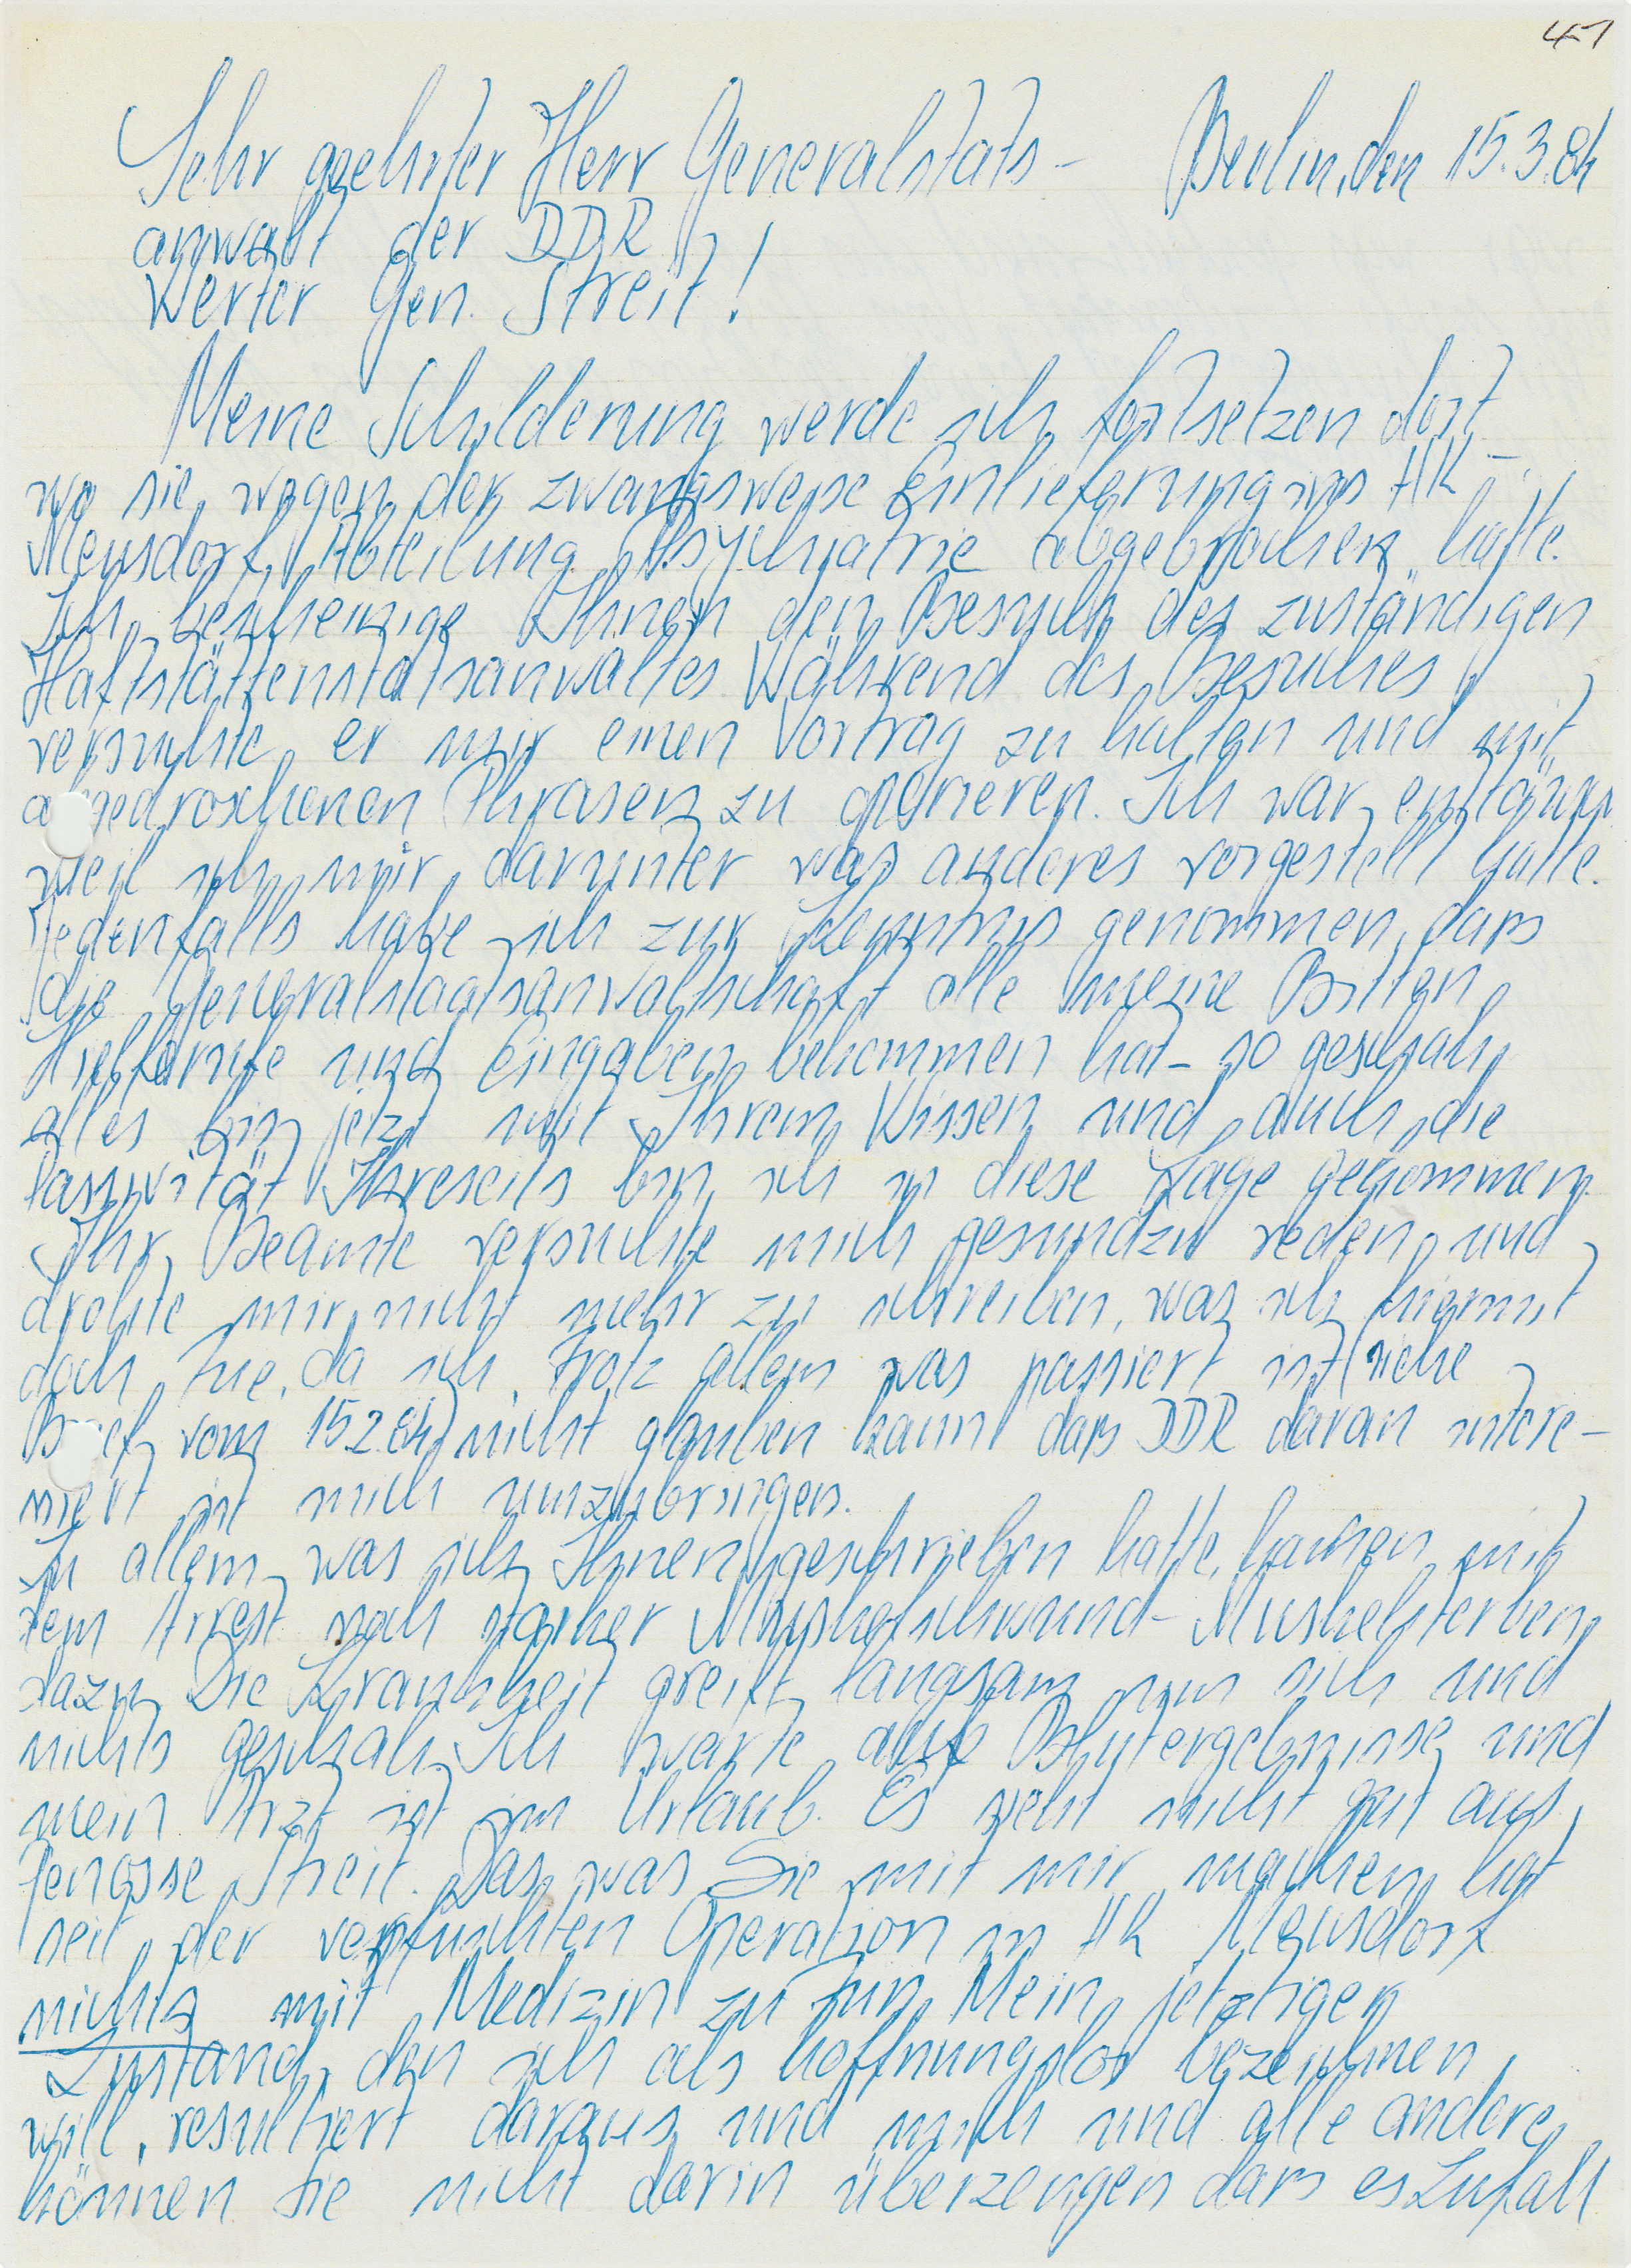 41
Sehr geehrter Herr Generalstats- Berlin, den 15.3.84
anwalt der DDR
Werter Gen. Streit!
Meine Schilderung werde ich fortsetzen dort
wo sie wegen der zwangsweise Einlieferung ins HK-
Meusdorf, Abteilung Psychiatrie abgebrochen hatte.
Ich bescheinige Ihnen den Besuch des zuständigen
Haftstättenstatsanwaltes. Während des Besuches
versuchte er mir einen Vortrag zu halten und mit
abgedroschenen Phrasen zu operieren. Ich war enttäuscht
weil ich mir darunter was anderes vorgestellt hatte.
Jedenfalls habe ich zur Kenntnis genommen, dass
die Generalstaatsanwaltschaft alle meine Bitten,
Hilferufe und Eingaben bekommen hat - so geschah
alles bis jetzt mit Ihrem Wissen und auch die
Passivität Ihreseits bin ich in diese Lage gekommen.
Ihr Beamte versuchte mich gesundzu reden und
drohte mir nicht mehr zu schreiben, was ich hiermit
doch tue, da ich trotz allem was passiert ist (siehe
Brief vom 15.2.84) nicht glauben kann dass DDR daran intere-
siert ist mich umzubringen.
Zu allem, was ich Ihnen geschrieben hatte, kamen mit
dem Arrest noch starker Muskelschwund - Muskelsterben
dazu. Die Krankheit greift langsam um sich und
nichts geschah. Ich warte auf Blutergebnisse und
mein Arzt ist im Urlaub. Es sieht nicht gut aus,
Genosse Streit. Das, was Sie mit mir machen hat
seit der verpfuschten Operation in HK Meusdorf
nichts mit Medizin zu tun. Mein jetztiger
Zustand, den ich als hoffnungslos bezeichnen
will, resultiert daraus und mich und alle andere
können Sie nicht darin überzeugen dass es Zufall